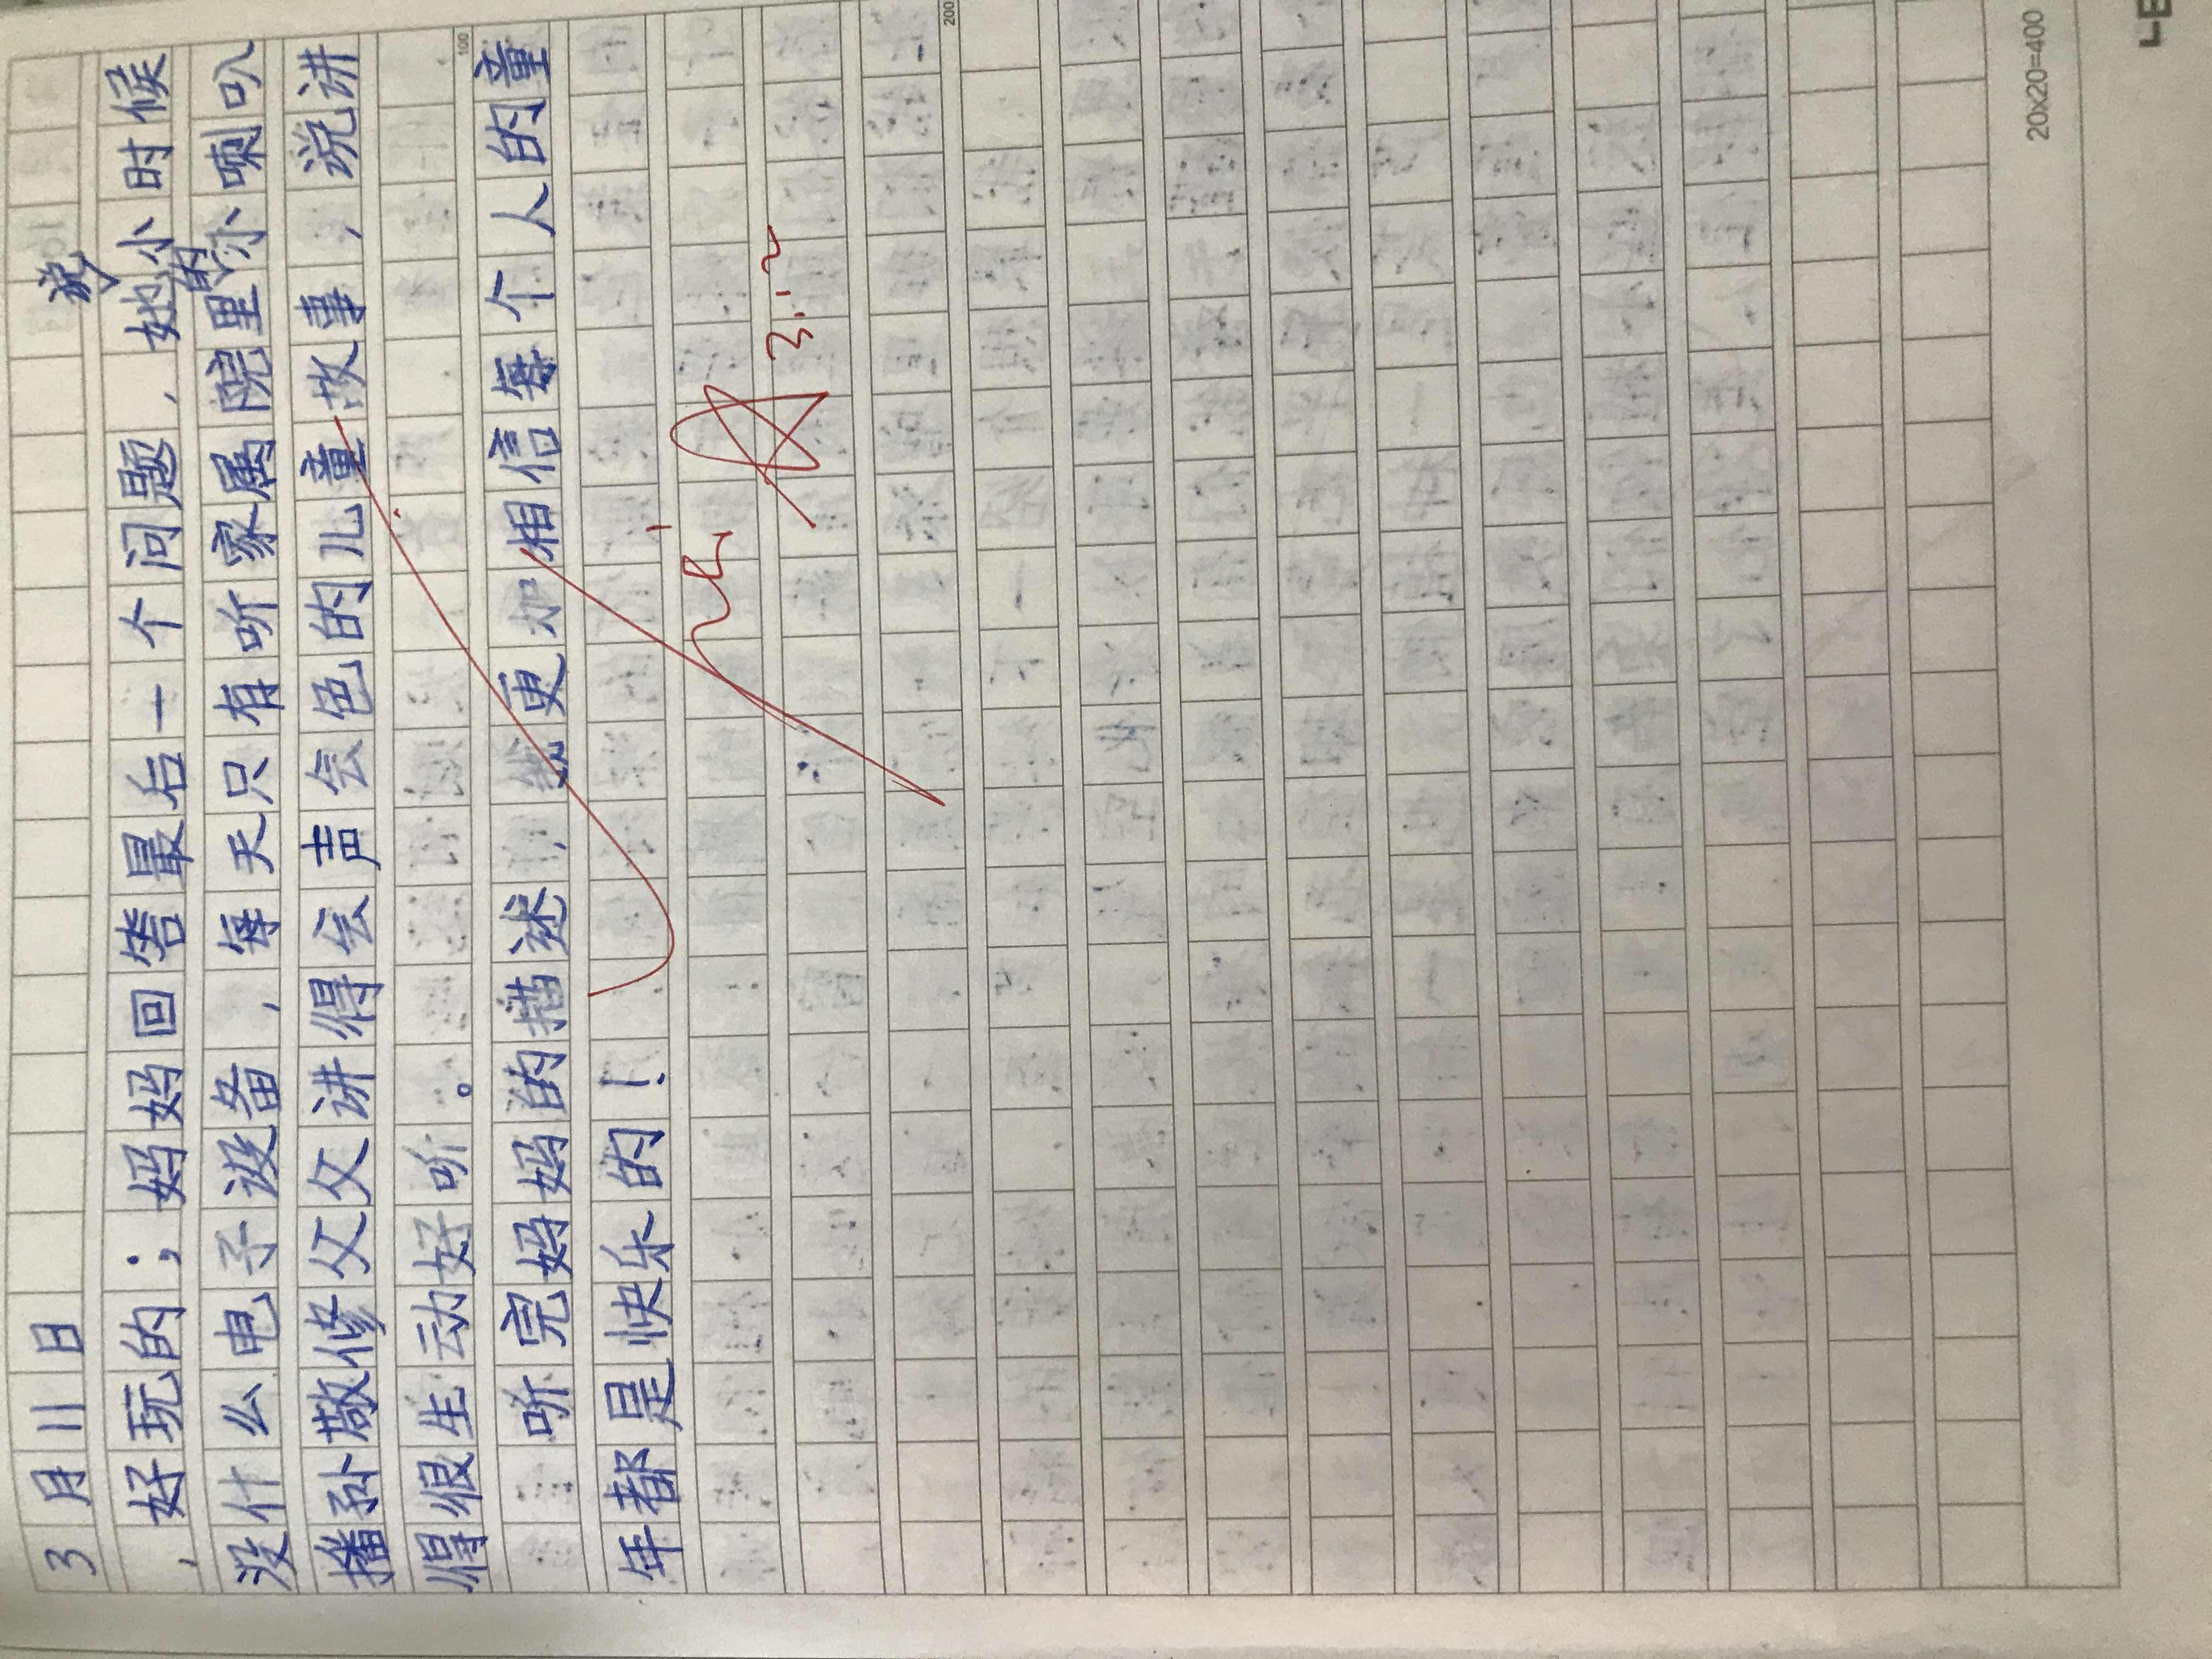 3月11日
，好玩的；妈妈回答最后一个问题，她说小时候
没什么电子设备，每天只有听家属院里的小喇叭
播孙敬修爷爷讲得会声会色的儿童故事，说讲
得很生动好听。
100
听完妈妈的描述，更加相信每个人的童
年都是快乐的！
3.12
200
20x20=400